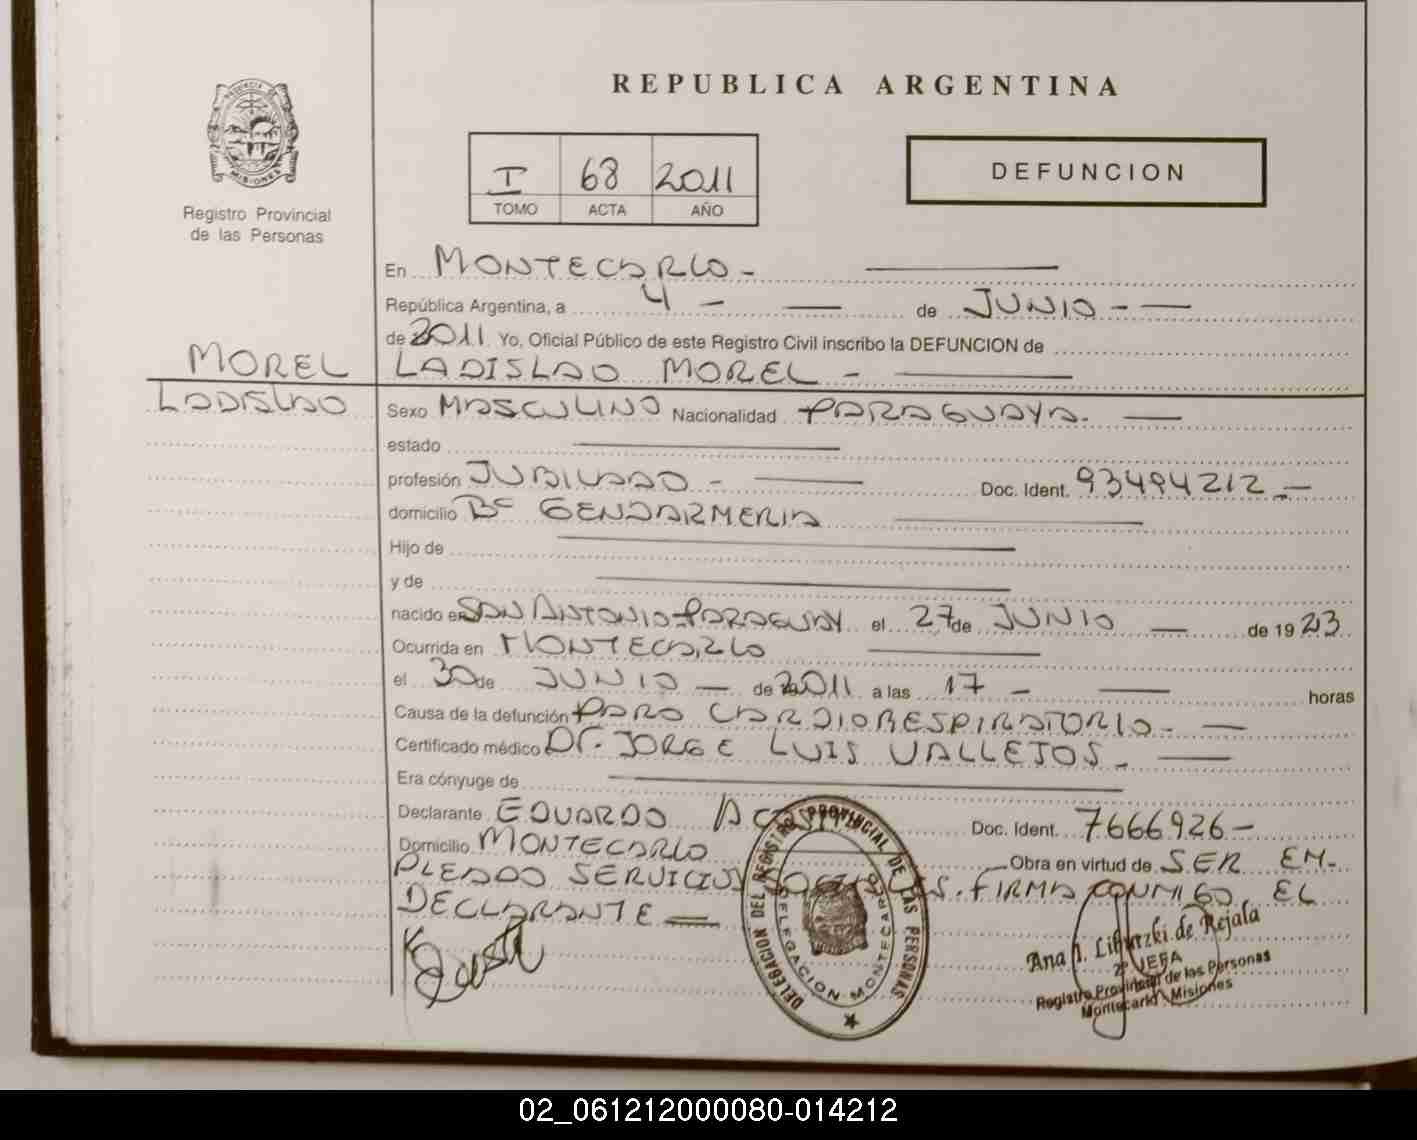 REPUBLICA ARGENTINA
PROVINCIA DE MISIONES
Registro Provincial
de las Personas
I 68 2011
TOMO ACTA AÑO
DEFUNCION
En MONTECARLO -
República Argentina, a 4 - de JUNIO -
de 2011 Yo, Oficial Público de este Registro Civil inscribo la DEFUNCION de
MOREL
LADISLAO
LADISLAO MOREL -
Sexo MASCULINO Nacionalidad PARAGUAYA.
estado
profesión JUBILADO - Doc. Ident. 93494212.-
domicilio Bº GENDARMERIA
Hijo de
y de
nacido en SAN ANTONIO-PARAGUAY el 27 de JUNIO de 1923
Ocurrida en MONTECARLO
el 30 de JUNIO de 2011 a las 17 - horas
Causa de la defunción PARO CARDIORESPIRATORIO.
Certificado médico Dr. JORGE LUIS VALLEJOS.
Era cónyuge de
Declarante EDUARDO ACOSTA Doc. Ident. 7666926-
Domicilio MONTECARLO Obra en virtud de SER EM-
PLEADO SERVICIOS SOCIALES. FIRMA CONMIGO EL
DECLARANTE
DELEGACION DEL REGISTRO PROVINCIAL DE LAS PERSONAS
DELEGACION MONTECARLO
Ana I. de Rejala
2º JEFA
Registro Provincial de las Personas
Montecarlo Misiones
02_061212000080-014212